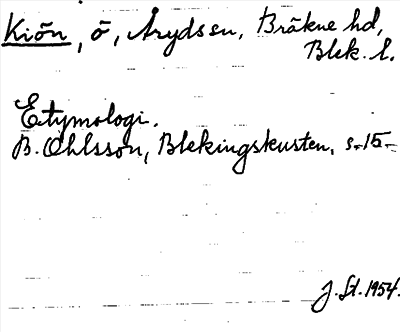 Kiön, ö, Åryds sn, Bräkne hd,
Blek. l.
Etymologi.
B. Ohlsson, Blekingskusten, s. 15
J. St. 1954.